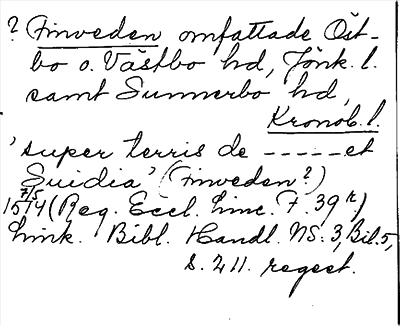 ? Finweden omfattade Öst-
bo o. Västbo hd, Jönk. l.
samt Sunnerbo hd,
Kronob. l.
'super terris de ----- et
Suidia' (Finweden?)
7/5
1514 (Reg. Eccl. Linc. F. 39r.)
Link. Bibl. Handl. NS. 3, Bil. 5,
s. 211. regest.